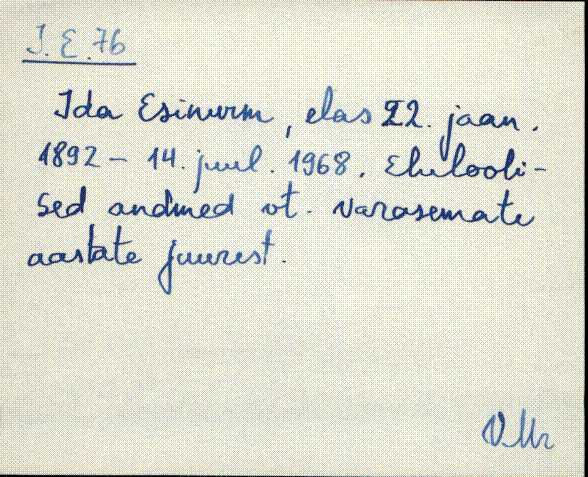 I. E. 76
Ida Esinurm, elas 22. jaan.
1892 – 14. juul. 1968. Elulooli-
sed andmed vt. varasemate
aastate juurest.